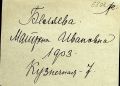 Беляева
Матрена Ивановна
1903
Кузнечная - 7